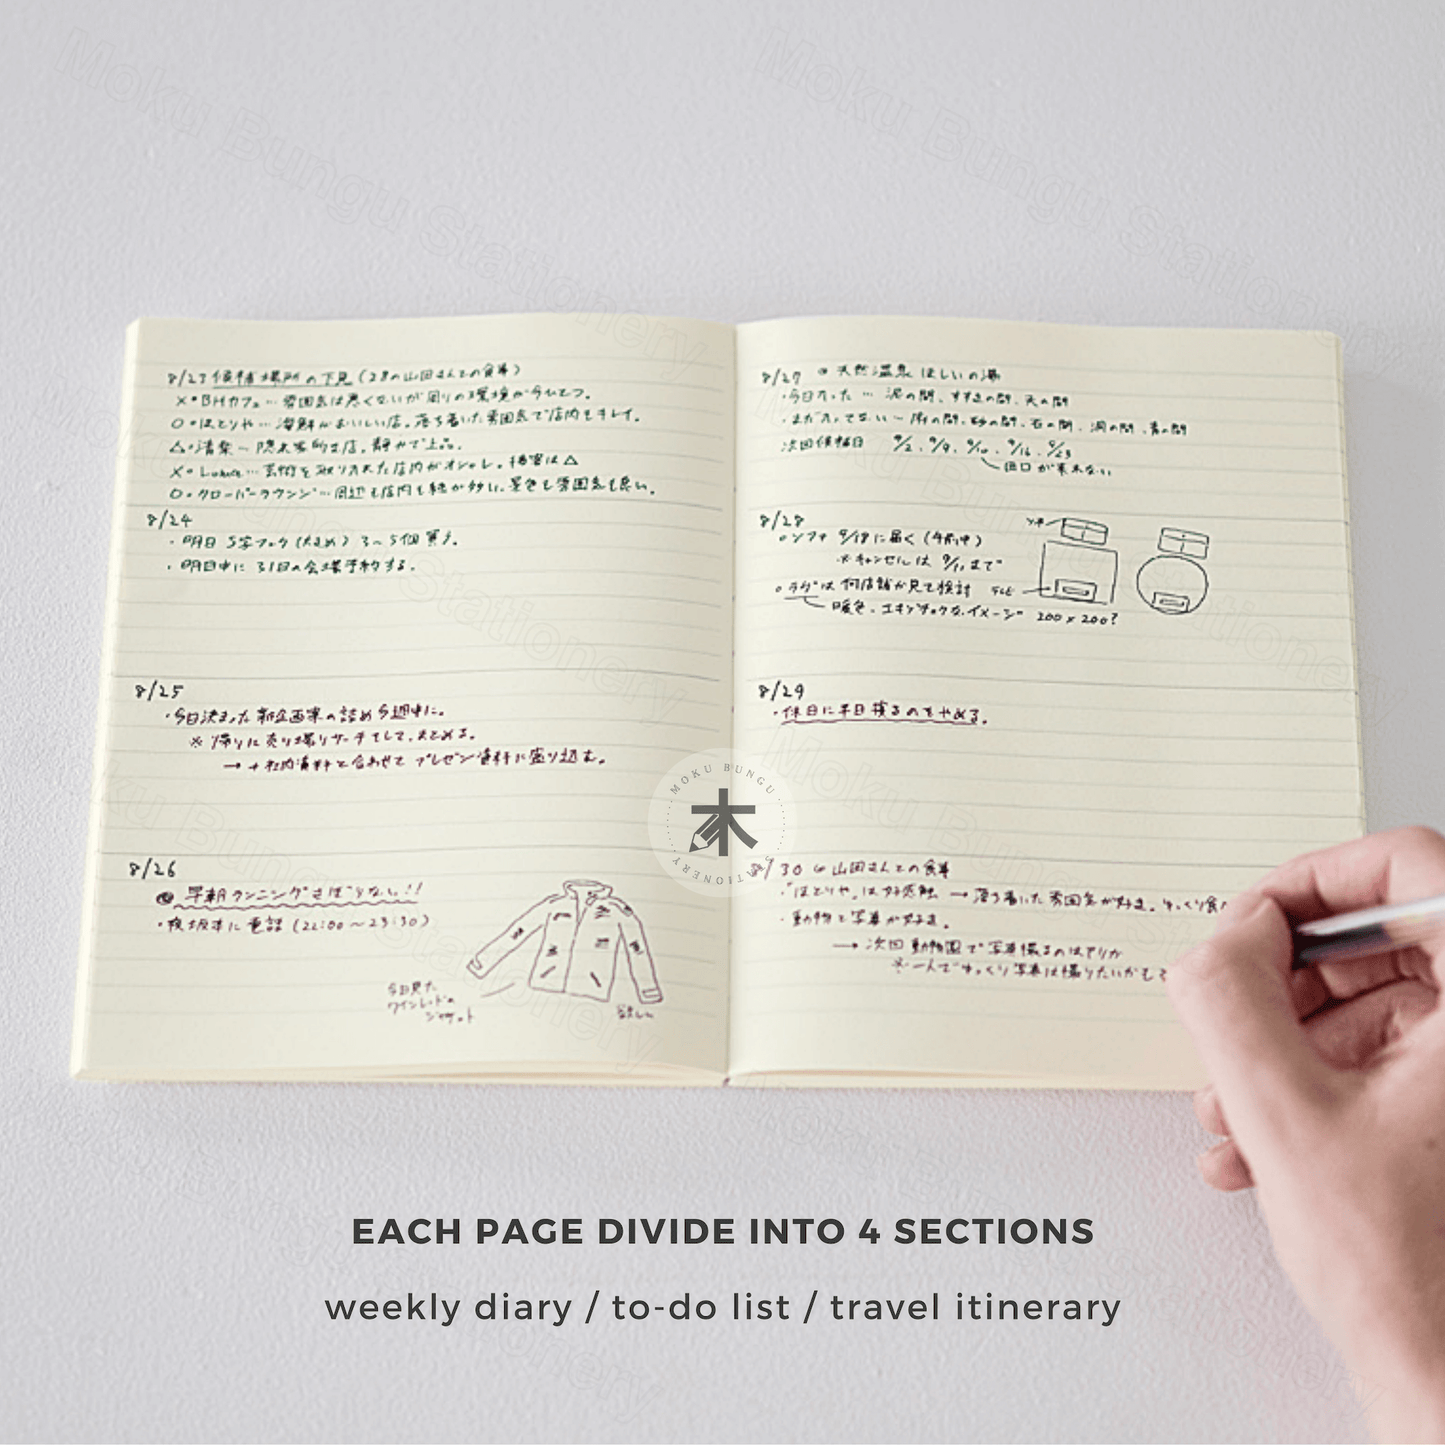 8/23 候補場所の下見(28の山田さんとの食事)
×・BHカフェ… 雰囲気は悪くないが周りの環境が今ひとつ。
○・ほとりや… 海鮮がおいしい店。落ち着いた雰囲気で店内もキレイ。
△・清楽… 隠れ家的な店。静かで上品。
×・ … 芸術を取り入れた店内がオシャレ。接客は△
○・クローバーラウンジ… 周辺も店内も緑が多い。景色も雰囲気も良い。
8/24
・明日 S字フック(大きめ) 3〜5個 買う。
・明日中に 31日の会場予約する。
8/25
・今日決まった 新企画案の詰め 今週中に。
※ 帰りに売り場リサーチをして、まとめる。
→ + 社内資料と合わせて プレゼン資料に盛り込む。
8/26
早朝ランニングさぼりなし!!
・夜 坂本に電話 (22:00〜23:30)
今日見た
ワインレッドの
ジャケット
欲しい
8/27 天然温泉 ほしいの湯
・今日入った … 泥の間、すすきの間、天の間
・まだ入ってない … 雨の間、砂の間、石の間、洞の間、青の間
次回候補日 9/2、9/9、9/10、9/16、9/23
8/28
○ソファ 9/18に届く(午前中)
※キャンセルは 9/11まで
○ラグは 何店舗か見て検討
暖色・エキゾチックなイメージ 200×200?
8/29
・休日に平日寝るのをやめる。
8/30 山田さんとの食事
・「ほとりや」は好感触 → 落ち着いた雰囲気が好き。ゆっくり食
・動物と写真が好き。
→ 次回 動物園で写真撮るのはアリか
※一人でゆっくり写真は撮りたいかも
MOKU BUNGU
木
STATIONERY
EACH PAGE DIVIDE INTO 4 SECTIONS
weekly diary / to-do list / travel itinerary
Moku Bungu Stationery